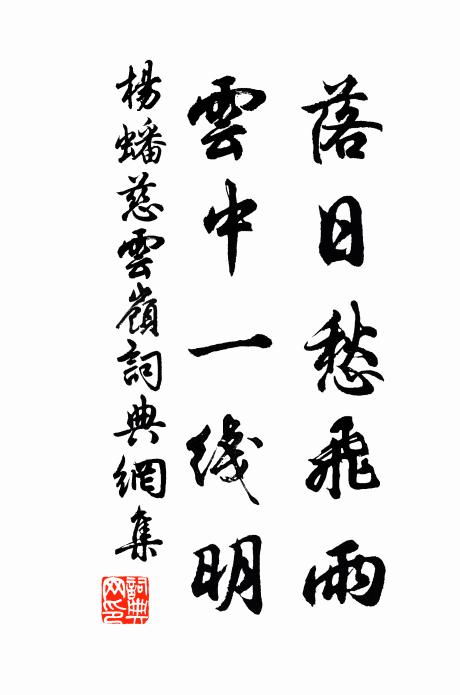 落日愁飛雨
雲中一线明
楊蟠慈雲嶺詞典網集
詞典网印